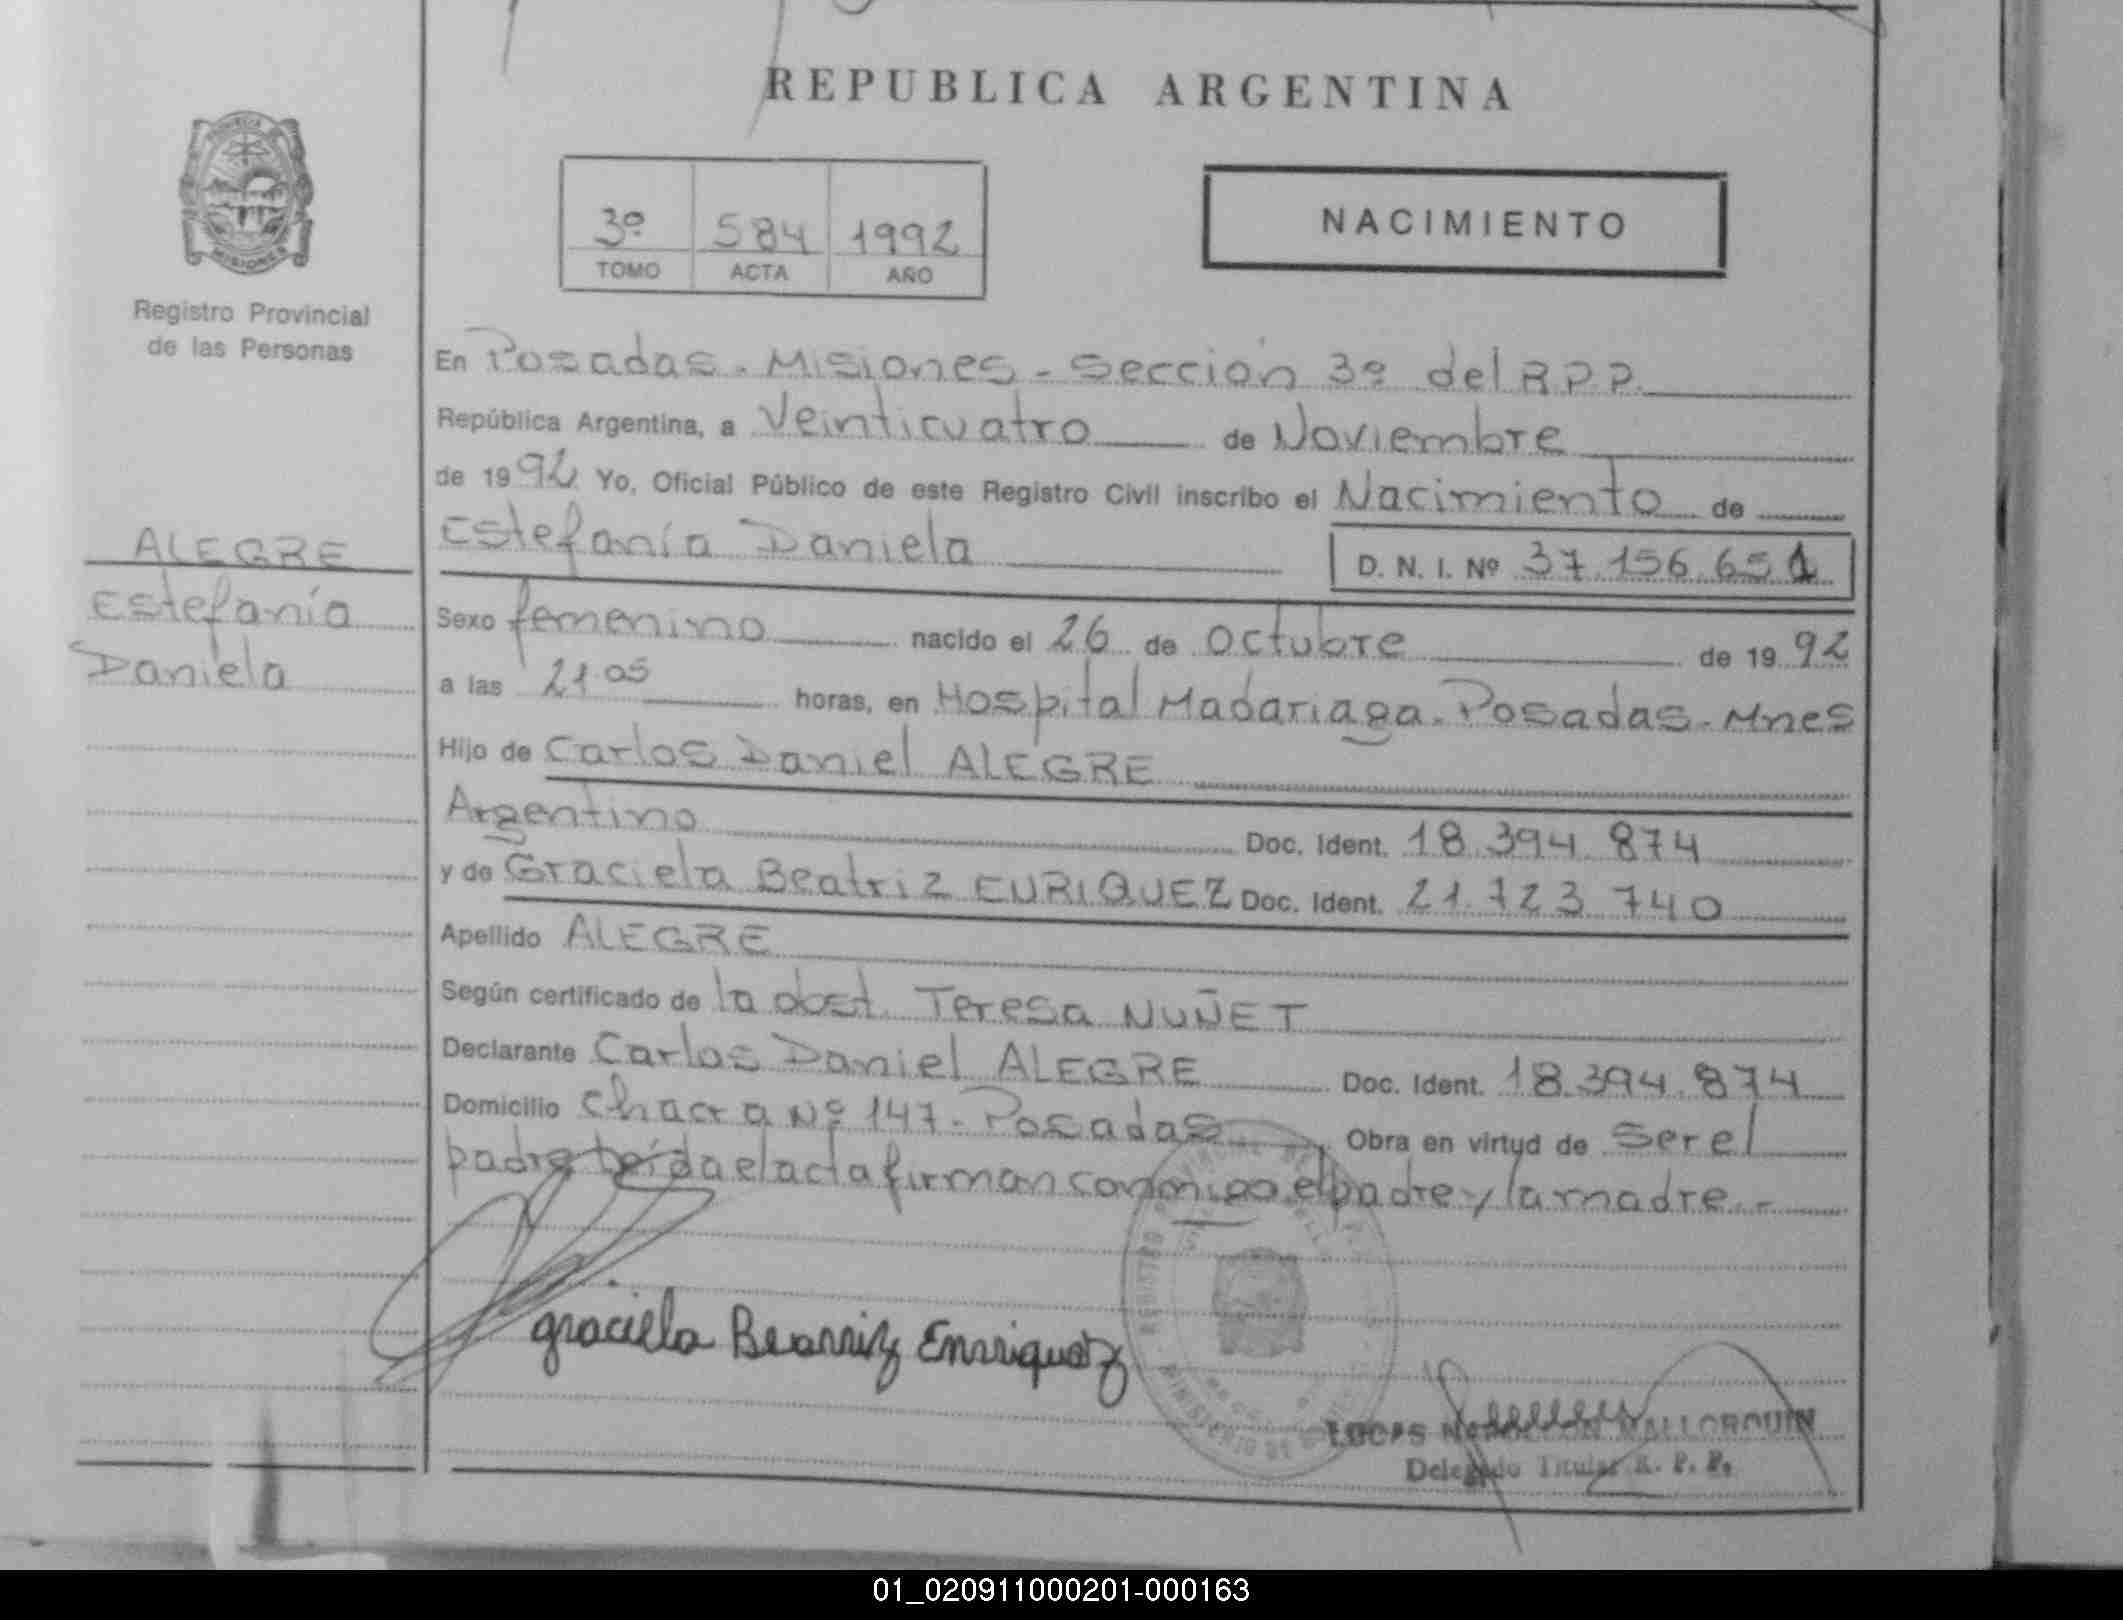 REPUBLICA ARGENTINA
PROVINCIA DE
MISIONES
Registro Provincial
de las Personas
3º 584 1992
TOMO ACTA AÑO
NACIMIENTO
En Posadas - Misiones - Sección 3º del R.P.P.
República Argentina, a Veinticuatro de Noviembre
de 1992 Yo, Oficial Público de este Registro Civil inscribo el Nacimiento de
Estefanía Daniela D. N. I. Nº 37.156.651
ALEGRE
Estefanía
Daniela
Sexo femenino nacido el 26 de Octubre de 1992
a las 21.05 horas, en Hospital Madariaga - Posadas - Mnes
Hijo de Carlos Daniel ALEGRE
Argentino Doc. Ident. 18.394.874
y de Graciela Beatriz ENRIQUEZ Doc. Ident. 21.723.740
Apellido ALEGRE
Según certificado de la obst. Teresa NUÑET
Declarante Carlos Daniel ALEGRE Doc. Ident. 18.394.874
Domicilio Chacra Nº 147 - Posadas Obra en virtud de ser el
padre leída el acta firman conmigo el padre y la madre.-
REGISTRO PROVINCIAL DE
MINISTERIO DE
graciela Beatriz Enrriquez
LUCAS NAPOLEON MALLORQUIN
Delegado Titular R. P. P.
01_020911000201-000163